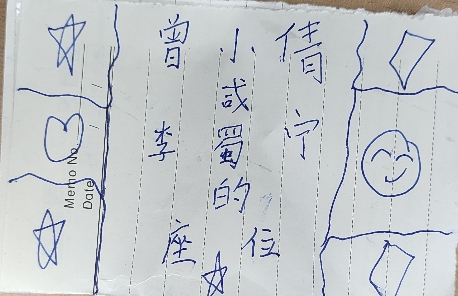 曾小倩
或
李蜀宁
的
座位
Memo No.
Date